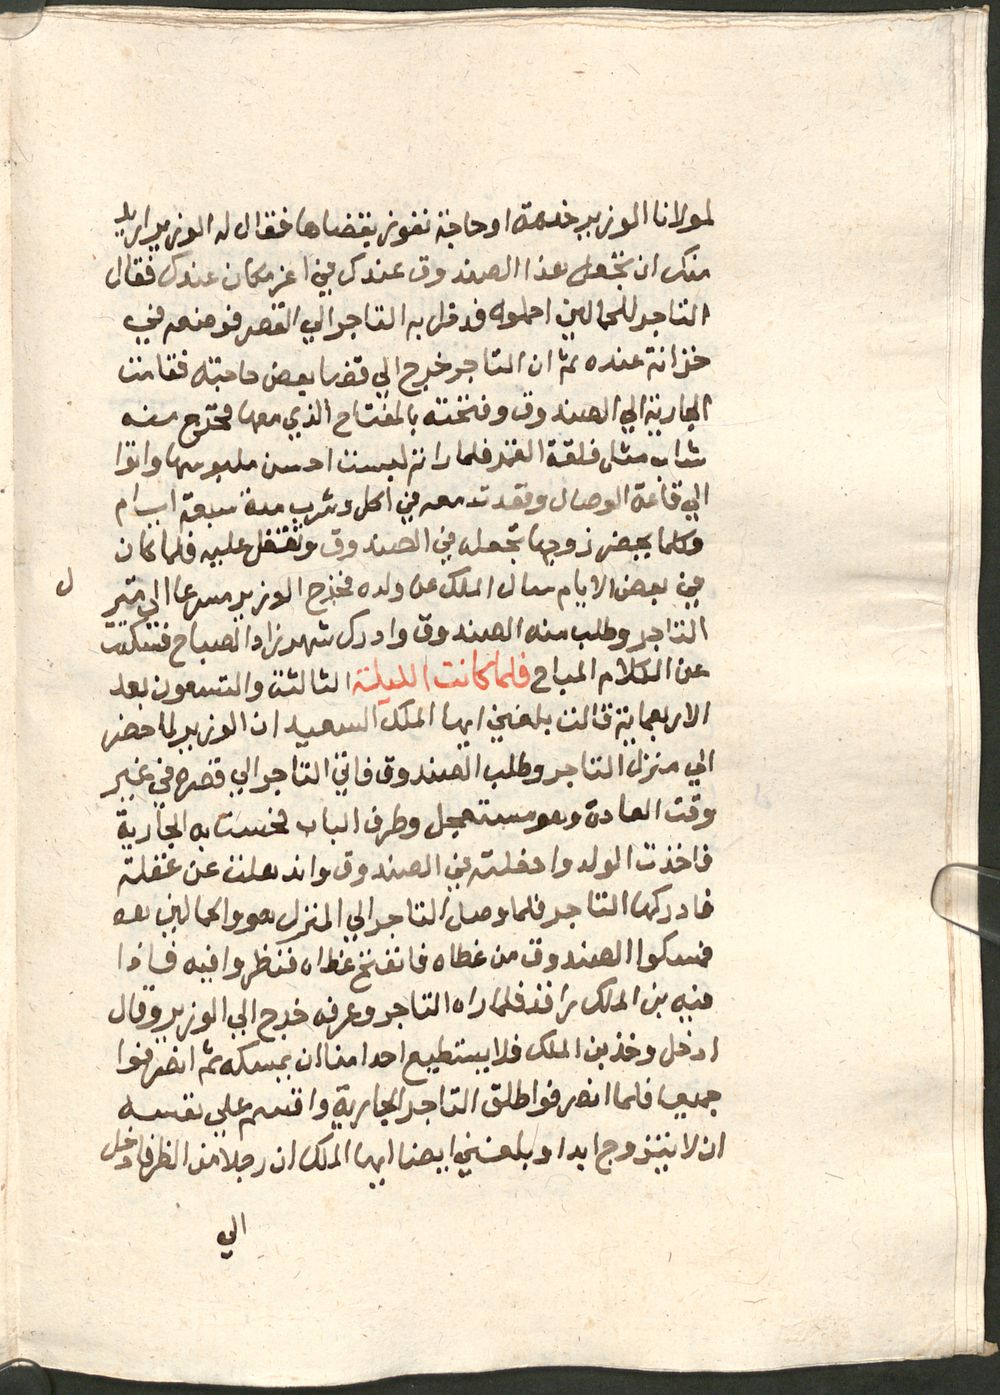 لمولانا الوزير خدمة او حاجة نفوز بقضاها فقال له الوزير اريد
منك ان تجعل هذا الصندوق عندك في اعز مكان عندك فقال
التاجر للحمالين احملوه فدخل به التاجر الي القصر فوضعه في
خزانة عنده ثم ان التاجر خرج الي قضا بعض حاجته فقامت
الجارية الي الصندوق وفتحته بالمفتاح الذي معها فخرج منه
شاب مثل فلقة القمر فلما راته لبست احسن ملبوسها واتوا
الي قاعة الوصال وقعدت معه في اكل وشرب مدة سبعة ايام
وكلما يحضر زوجها تجعله في الصندوق وتقفل عليه فلما كان
في بعض الايام سال الملك عن ولده فخرج الوزير مسرعا الي منزل
التاجر وطلب منه الصندوق وادرك شهرزاد الصباح فسكتت
عن الكلام المباح فلما كانت الليلة الثالثة والتسعون بعد
الاربعماية قالت بلغني ايها الملك السعيد ان الوزير لما حضر
الي منزل التاجر وطلب الصندوق فاتي التاجر الي قصره في غير
وقت العادة وهو مستعجل وطرف الباب فحست به الجارية
فاخذت الولد وادخلته في الصندوق واندهلت عن غفلة
فادركها التاجر فلما وصل التاجر الي المنزل هو والحمالين معه
فمسكوا الصندوق من غطاه فانفتح غطاه فنظروا فيه فاذا
فيه بن الملك راقد فلما راه التاجر وعرفه خرج الي الوزير وقال
ادخل وخذ بن الملك فلا يستطيع احدا منا ان يمسكه ثم انصرفوا
جميعا فلما انصرفوا طلق التاجر الجارية واقسم علي نفسه
ان لا يتزوج ابدا وبلغني ايضا ايها الملك ان رجلا من الظرفا دخل
الي